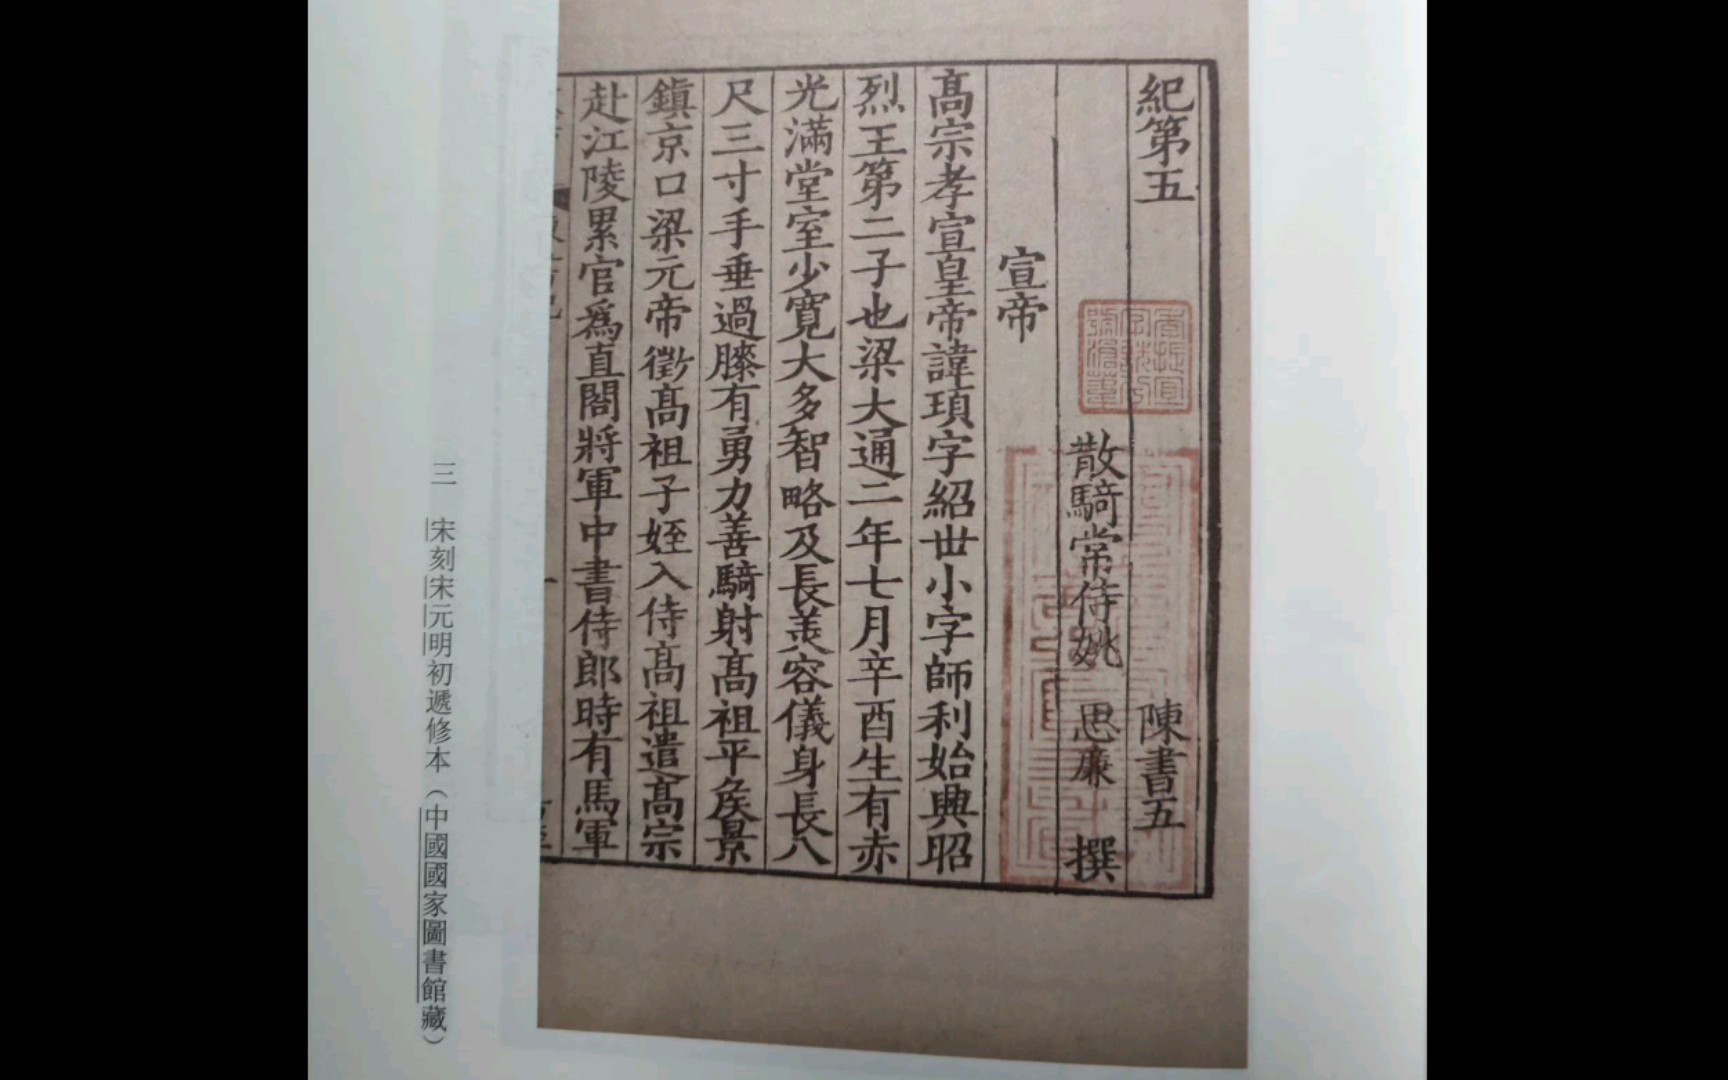 紀第五 陳書五
散騎常侍姚 思廉 撰
宣帝
髙宗孝宣皇帝諱頊字紹世小字師利始興昭
烈王第二子也梁大通二年七月辛酉生有赤
光滿堂室少寛大多智略及長美容儀身長八
尺三寸手垂過膝有勇力善騎射髙祖平侯景
鎮京口梁元帝徵髙祖子姪入侍髙祖遣髙宗
赴江陵累官爲直閤將軍中書侍郎時有馬軍
三 宋刻宋元明初遞修本（中國國家圖書館藏）